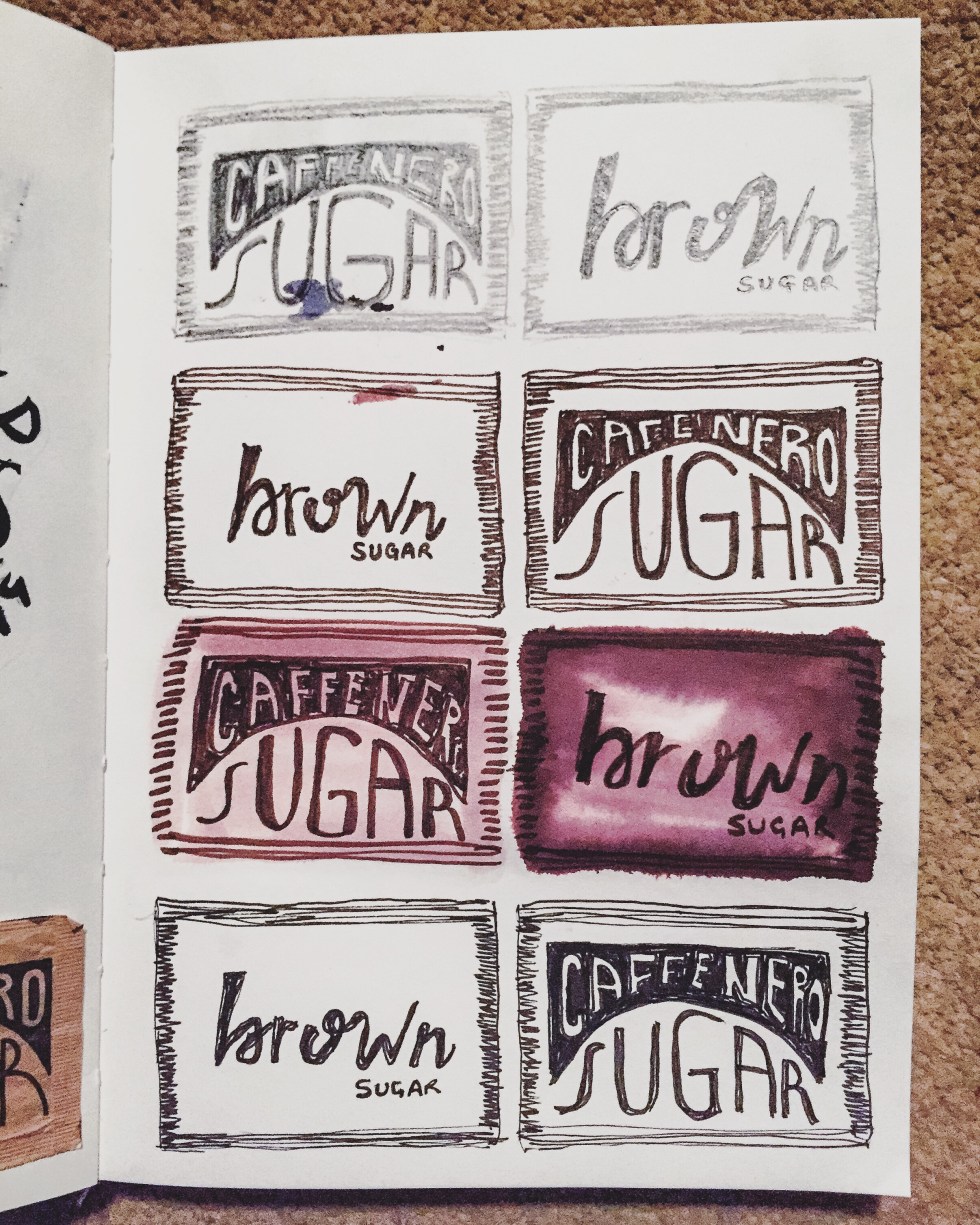 CAFFE NERO
SUGAR
brown
SUGAR
brown
SUGAR
CAFE NERO
SUGAR
CAFFE NERO
SUGAR
brown
SUGAR
brown
SUGAR
CAFFE NERO
SUGAR
RO
R